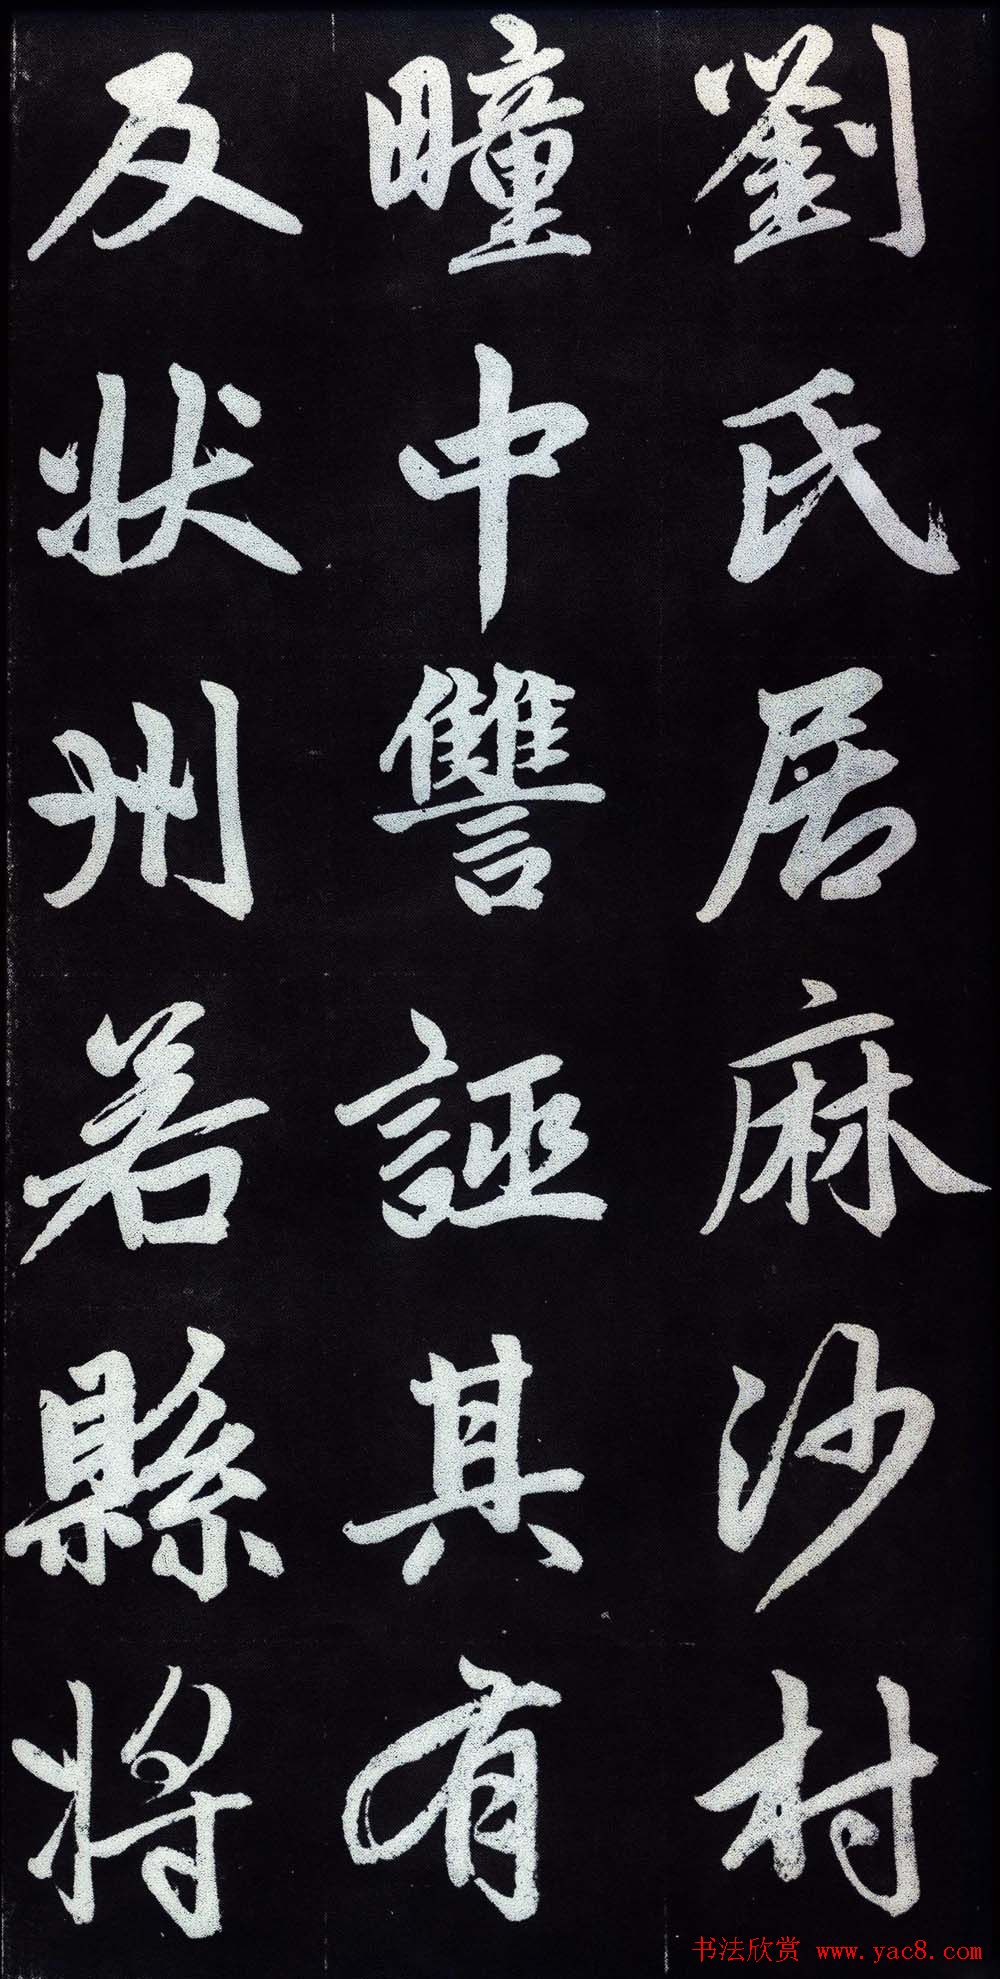 劉氏居麻沙村
曈中讐誣其有
反狀州若縣將
书法欣赏 www.yac8.com